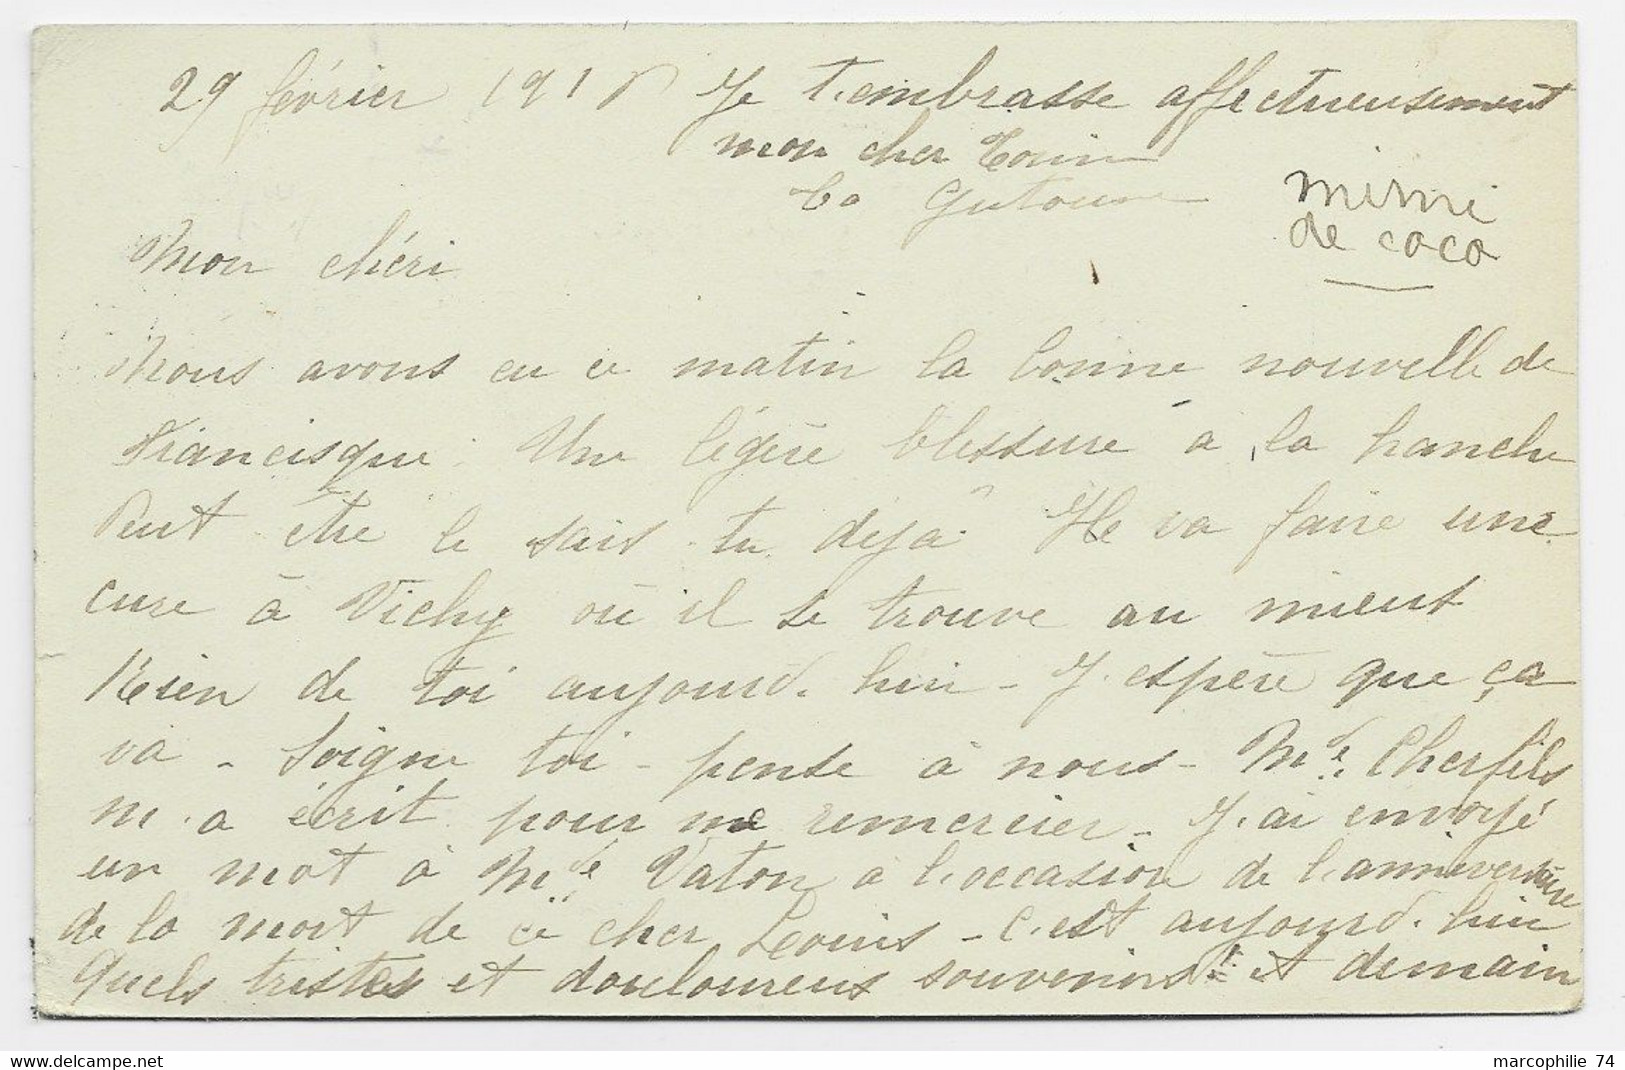 29 février 191
Je t'embrasse affectueusement
mon cher
mimi
de coco
Mon chéri
Nous avons eu ce matin la bonne nouvelle de
Francisque. Une légère blessure à la hanche
Peut être le sais-tu déjà. Il va faire une
cure à Vichy où il se trouve au mieux
Rien de toi aujourd'hui - J'espère que ça
va - Soigne toi - pense à nous - Mde Cherfils
m'a écrit pour me remercier - J'ai envoyé
un mot à Mde Vaton à l'occasion de l'anniversaire
de la mort de ce cher Louis - C'est aujourd'hui
Quels tristes et douloureux souvenirs! et demain
marcophilie_74
delcampe.net